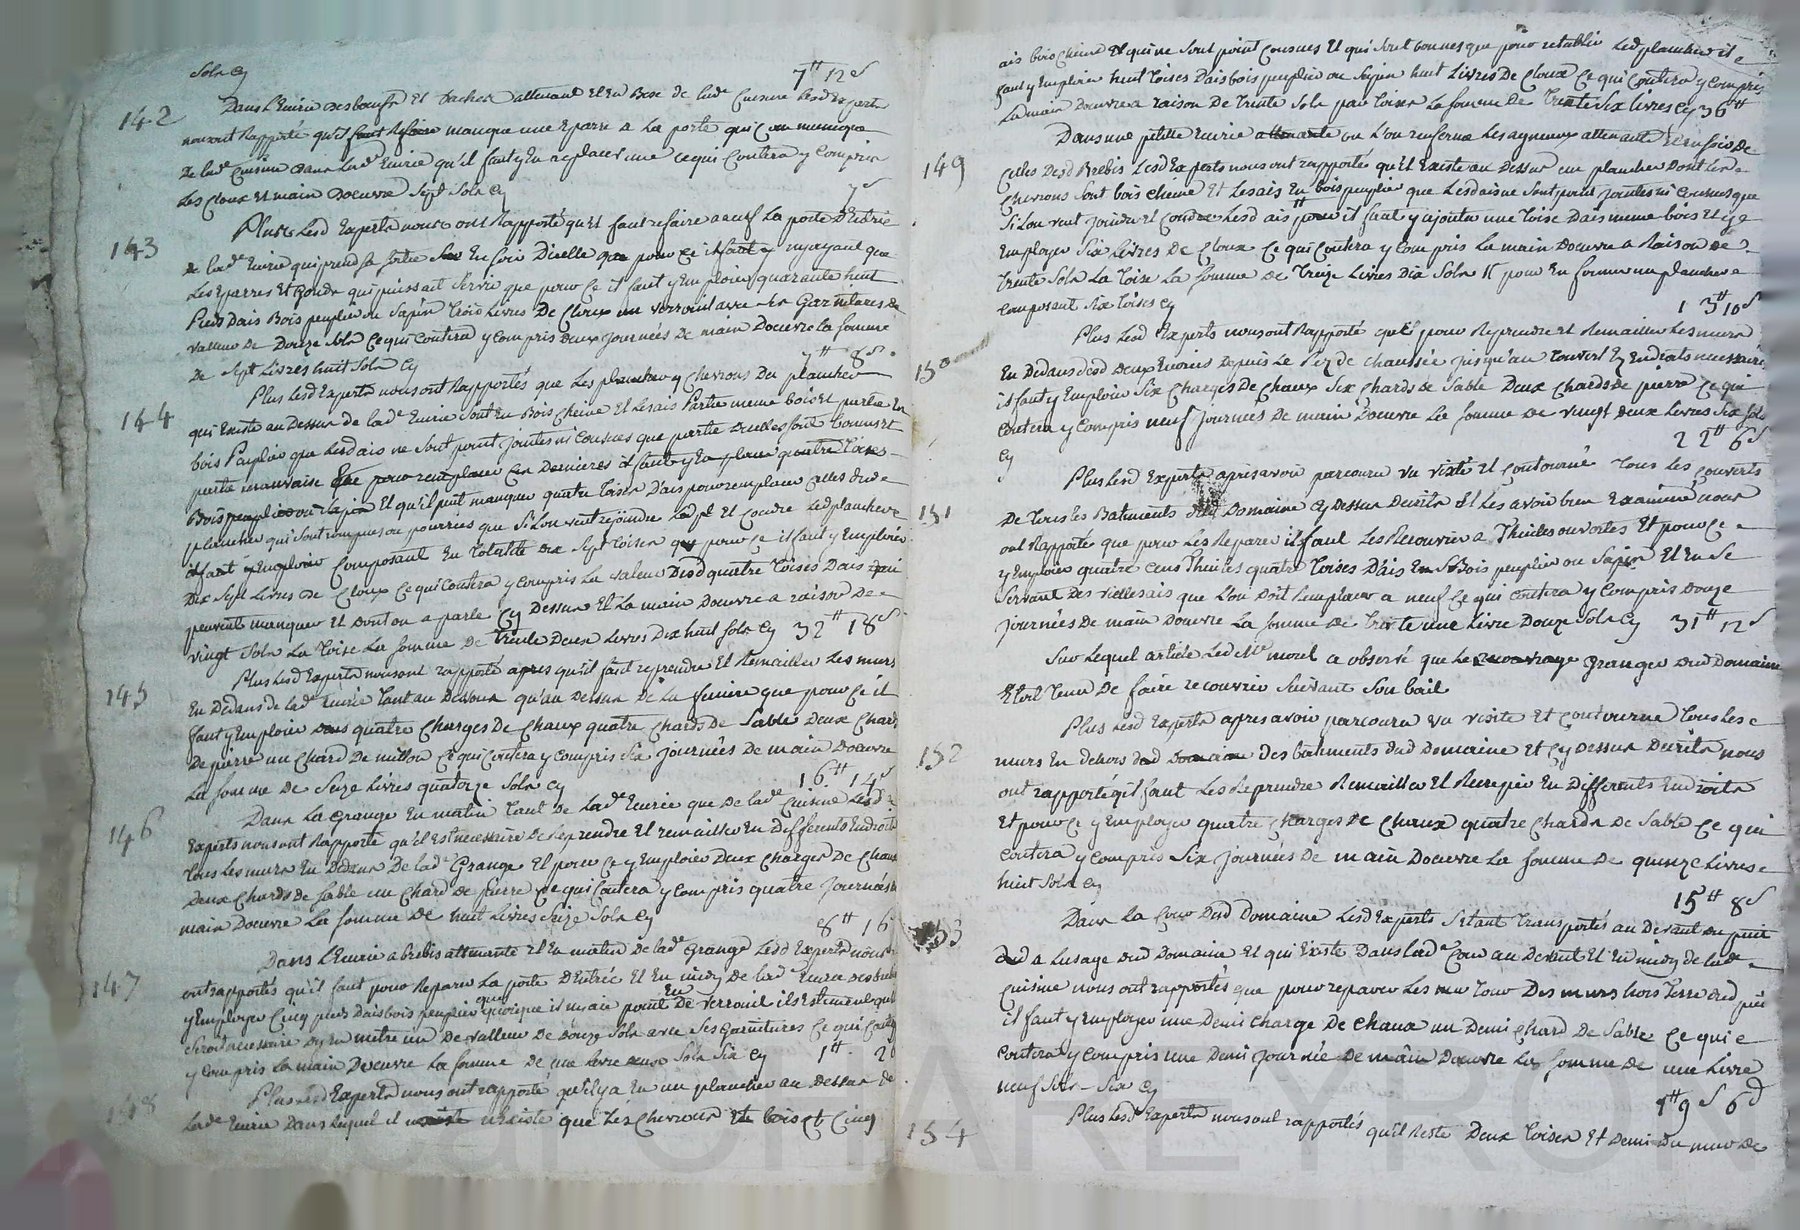 Sols cy
7ᵗᵗ 12ˢ
142
Dans l'Ecurie des bœufs Et vaches attenant Et En Bise de lade Cuisine lesd Experts
nous ont Rapporté qu'il manque une Eparre a La porte qui communique
de lade Cuisine dans lade Ecurie qu'il faut y En replacer une ce qui Coutera y Compris
Les Cloux Et main Doeuvre Sept Sols Cy
7ˢ
143
Plus lesd Experts nous ont Rapporté qu'il faut refaire a neuf La porte D'Entrée
de lade Ecurie qui prend sa sortie En soir Dicelle que pour ce il n'y ayant que
Les Eparres Et Gonds qui puissent servir que pour ce il faut y Employer quarante huit
Pieds Dais Bois peuplier ou Sapin Trois Livres De Cloux un verrouil avec ses Garnitures de
valleur de Douze sols Ce qui Coutera y Compris deux journées De main Doeuvre la somme
De Sept Livres huit Sols Cy
7ᵗᵗ 8ˢ
144
Plus lesd Experts nous ont Rapportés que Les plancher y Chevrons Du plancher
qui Existe au Dessus de lade Ecurie sont En Bois Cheine Et les ais Partie meme bois Et partie En
bois Peuplier que lesd ais ne sont point jointes ni Cousues que partie dicelles sont bonnes Et
partie mauvaise que pour remplacer ces Dernieres il faut y En placer quatre Toises
Bois peuplier ou sapin Et qu'il peut manquer quatre Toises D'ais pour remplacer celles dud
plancher qui sont rompues ou pourries que si L'on veut rejoindre Et Coudre led plancher
il faut y Employer Composant En Totalité dix Sept Toises que pour ce il faut y Employer
Dix Sept Livres de Cloux Ce qui Coutera y Compris La valeur Desd quatre Toises Dais qui
peuvent manquer Et dont on a parlé Cy Dessus Et La main Doeuvre a raison de
vingt Sols La Toise La somme de Trente Deux Livres Dix huit sols Cy 32ᵗᵗ 18ˢ
145
Plus lesd Experts nous ont rapporté qu'il faut reprendre Et Remailler Les murs
En Dedans de lade Ecurie Tant au Dessous qu'au Dessus De La feniere que pour ce il
faut y Employer quatre Charges De Chaux quatre Chards De Sable Deux Chards
De pierre un Chard De millon Ce qui Coutera y Compris Six journées De main Doeuvre
La somme De Seize Livres quatorze Sols Cy
16ᵗᵗ 14ˢ
146
Dans La Grange En matin Tant de lade Ecurie que De lade Cuisine lesd
Experts nous ont Rapporté qu'il Est necessaire De Reprendre Et remailler En Differents Endroits
Tous Les murs En Dedans De lade Grange Et pour ce y Employer Deux Charges De Chaux
Deux Chards de Sable un Chard de pierre ce qui Coutera y Compris quatre journées
main Doeuvre La somme De huit Livres Seize Sols Cy
8ᵗᵗ 16
147
Dans l'Ecurie a brebis attenante Et En matin de lade Grange Lesd Experts nous
ont rapportés qu'il faut pour Reparer La porte D'Entrée Et En midy De lade Ecurie des brebis
y Employer Cinq pieds Dais bois peuplier que quoique il n'y ait point En De verrouil il Est même
seroit necessaire dy En mettre un de valleur de Douze Sols avec Ses Garnitures Ce qui Coutera
y Compris La main Doeuvre La somme de une Livre deux Sols Six Cy 1ᵗᵗ 2ˢ
148
Plus lesd Experts nous ont rapporté qu'il y a Eu un plancher au Dessus de
lade Ecurie Dans lequel il n'existe que Les Chevrons Et Cinq
ais bois Cheine Et qui ne sont point Cousues Et qui sont bonnes que pour retablir led plancher il
faut y Employer huit Toises Dais bois peuplier ou Sapin huit Livres De Cloux Ce qui Coutera y Compris
La main Doeuvre a raison De Trente Sols par Toises La somme De Trente Six livres Cy 36ᵗᵗ
149
Dans une petite Ecurie ou L'on renferme Les agneaux attenante Et En soir De
Celles Desd Brebis Lesd Experts nous ont rapportés qu'il Existe au Dessus un plancher Dont Les
Chevrons sont bois Cheine Et Les ais En bois peuplier que Lesd ais ne sont point jointes ni Cousues que
Si Lon veut joindre Et Coudre Lesd ais il faut y ajouter une Toise Dais meme bois Et y
Employer Six Livres De Cloux Ce qui Coutera y Compris La main Doeuvre a Raison De
Trente Sols La Toise La somme de Treize Livres Dix Sols pour En former un plancher
Composant Six Toises Cy
13ᵗᵗ 10ˢ
150
Plus Lesd Experts nous ont Rapporté que pour Reprendre Et Remailler Les murs
En Dedans desd Deux Ecuries Depuis Le Rez de Chaussée jusqu'au Couvert Es Endroits necessaires
il faut y Employer Six Charges De Chaux Six Chards de Sable Deux Chards De pierre Ce qui
Coutera y Compris neuf journées De main Doeuvre La somme de vingt deux Livres Six Sols
Cy
22ᵗᵗ 6ˢ
151
Plus Lesd Experts apres avoir parcouru vu visité Et Contourné Tous Les Couverts
De Tous les Batiments dud Domaine Cy Dessus Decrits Et Les avoir bien Examinné nous
ont Rapporté que pour Les Reparer il faut Les Recouvrir a Thuiles ouvertes Et pour ce
y Employer quatre Cens Thuiles quatre Toises D'ais En Bois peuplier ou Sapin Et En Se
Servant Des vielles ais que L'on Doit remplacer a neuf Ce qui Coutera y Compris Douze
journées De main Doeuvre La somme De Trente une Livre Douze Sols Cy 31ᵗᵗ 12ˢ
Sur Lequel article Led Mʳ morel a observé que Le Granger Dud Domaine
Etoit Tenu De faire recouvrir Suivant Son bail
152
Plus Lesd Experts apres avoir parcouru vu visité Et Contourné Tous Les
murs En dehors des batiments dud Domaine Et Cy Dessus Decrits nous
ont rapporté qu'il faut Les Reprendre Remailler Et Recrepir En Differents Endroits
Et pour ce y Employer quatre Charges De Chaux quatre Chards De Sable Ce qui
Coutera y Compris Six journées De main Doeuvre La somme De quinze Livres
huit Sols Cy
15ᵗᵗ 8ˢ
153
Dans La Cour Dud Domaine Lesd Experts Setant Transportés au Devant Du puit
a Lusage Dud Domaine Et qui Existe Dans lade Cour au Devant Et En midy de lade
Cuisine nous ont rapportés que pour reparer Les Des murs hors Terre dud puit
il faut y Employer une Demi Charge De Chaux un Demi Chard De Sable Ce qui
Coutera y Compris une Demi journée De main Doeuvre La somme de une Livre
neuf Sols Six Cy
1ᵗᵗ 9ˢ 6ᵈ
154
Plus Lesd Experts nous ont rapportés qu'il Reste Deux Toises Et Demi Du mur De
CHAREYRON